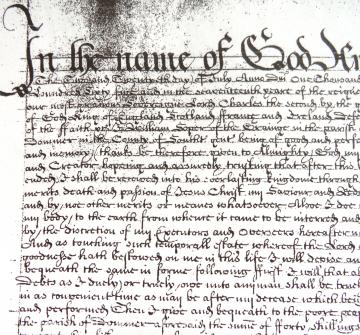 In the name of God
The Twentyth day of July Anno Dni One Thousand
hundred Sixty five and in the seaventeenth yeare of the reigne
our most gracious Sovereaine Lord Charles the second by the g
of God King of England Scotland ffrance and Ireland Defe
of the ffaith &c I William Soper of the Grainge in the parish
Dummer in the County of Southt gent being of good and perfe
and memory thanks be therefore given to Almighty God my
and Creator hopeing and assuredly trusting that after this l
ended, I shall be received into his everlasting kingdome through
meritts death and passion of Jesus Christ my Saviour and Rede
and by noe other merits or meanes whatsoever Alsoe I doe
my body, to the earth from whence it came to be interred and
by the discretion of my Executors and Overseers hereafter n
And as touching such temporall estate whereof the Lord
goodnesse hath bestowed on me in this life I will devise an
bequeath the same in forme following ffirst I will that a
Debts as I duely or truely owe unto any man shall be true
in as convenient time as may be after my decease which bei
and performed Then I give and bequeath to the poore peop
the parish of Dummer aforesaid the some of forty shill